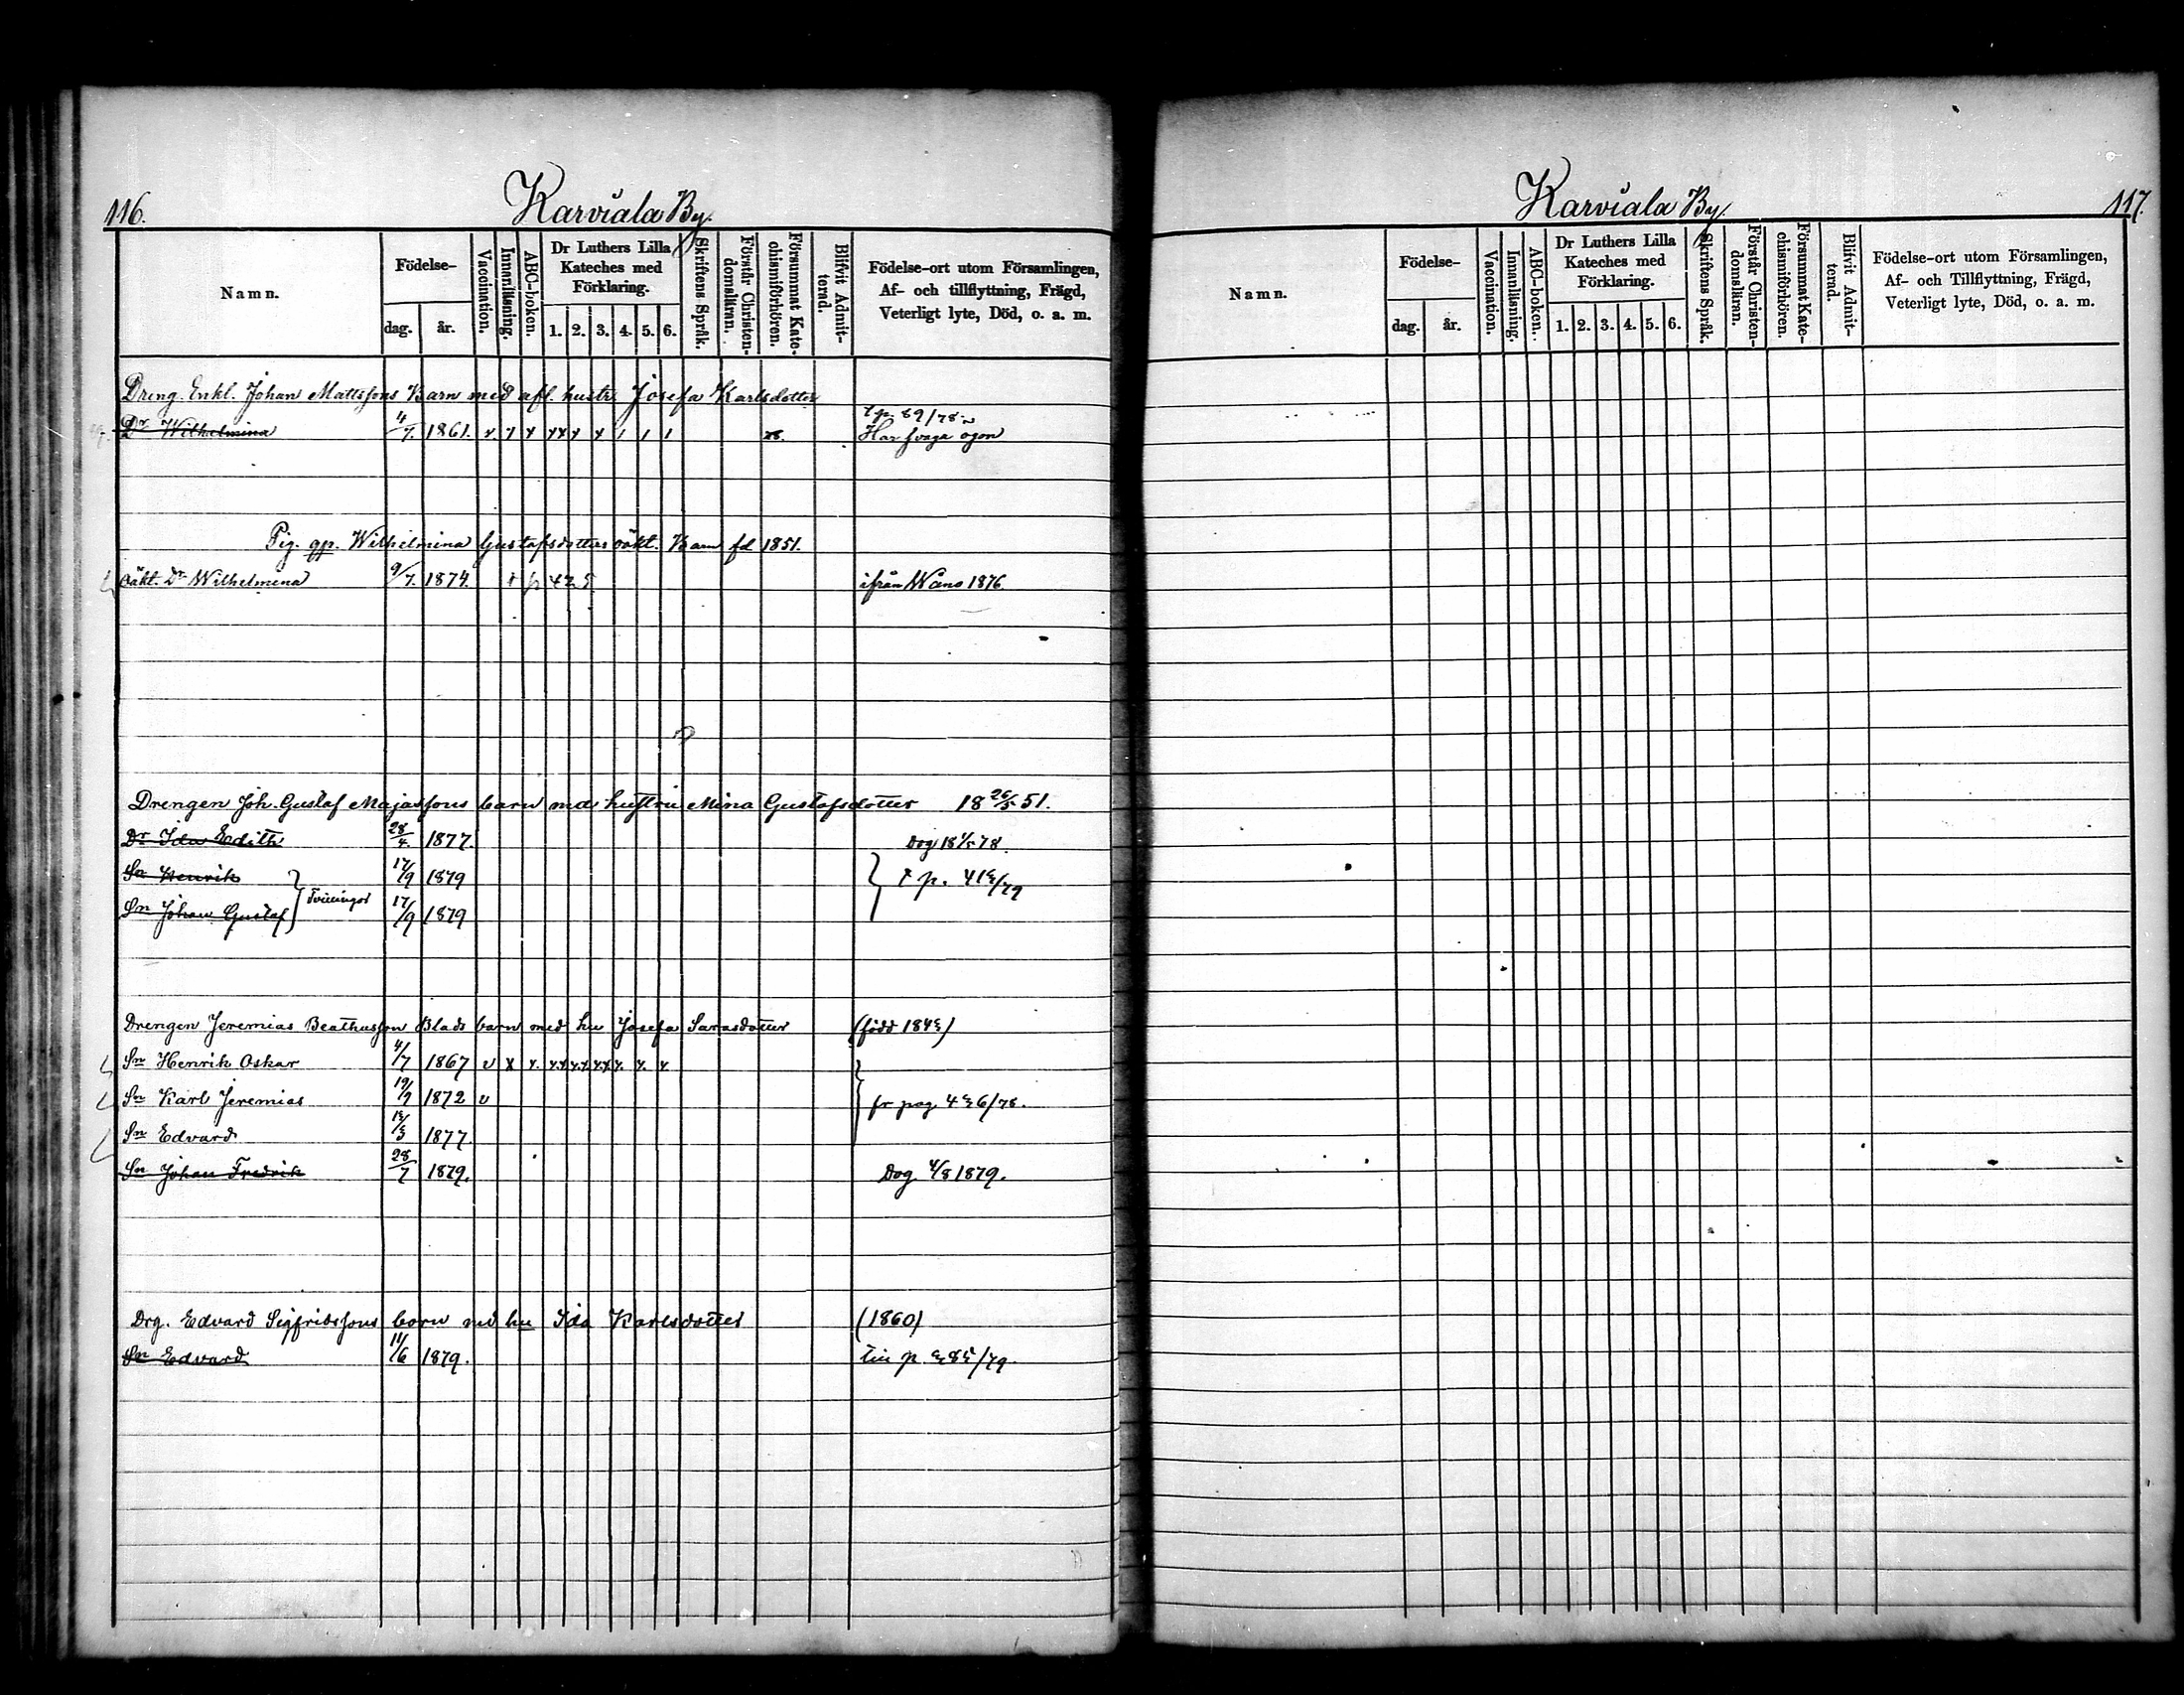 116.
Karviala By.
Namn.
Födelse-
dag.
år.
Vaccination.
Innanläsning.
ABC-boken.
Dr Luthers Lilla
Kateches med
Förklaring.
1. 2. 3. 4. 5. 6.
Skriftens Språk.
Förstår Christen-
domsläran.
Försummat Kate-
chismiförhören.
Blifvit Admit-
terad.
Födelse-ort utom Församlingen,
Af- och tillflyttning, Frägd,
Veterligt lyte, Död, o. a. m.
Dreng. Enkl. Johan Mattssons Barn med afl. hustr. Josefa Karlsdotter
t p. 89/78
Dr Wilhelmina 4/7. 1861. Har svaga ögon
Pig. gp. Wilhelmina Gustafsdotters oäkt. Barn fd 1851.
oäkt. Dr Wilhelmina 9/7. 1874. ifrån Wåno 1876.
Drengen Joh. Gustaf Majassons barn med hustru Mina Gustafsdotter 18 26/5 51.
Dr Ida Edith 28/4. 1877. Dog 18 1/5 78.
Sn Henrik 17/9 1879
Tvillingar
Sn Johan Gustaf 17/9 1879
Drengen Jeremias Beathusson Blads barn med hu Josefa Sarasdotter
Sn Henrik Oskar 4/7 1867 v
Sn Karl Jeremias 19/9 1872 v
Sn Edvard 1877.
Sn Johan Fredrik 28/7 1879. Dog 4/8 1879.
Drg. Edvard Sigfridssons barn md hu Ida Karlsdotter (1860)
Sn Edvard 11/6 1879.
Karviala By.
117.
Namn.
Födelse-
dag.
år.
Vaccination.
Innanläsning.
ABC-boken.
Dr Luthers Lilla
Kateches med
Förklaring.
1. 2. 3. 4. 5. 6.
Skriftens Språk.
Förstår Christen-
domsläran.
Försummat Kate-
chismiförhören.
Blifvit Admit-
terad.
Födelse-ort utom Församlingen,
Af- och Tillflyttning, Frägd,
Veterligt lyte, Död, o. a. m.